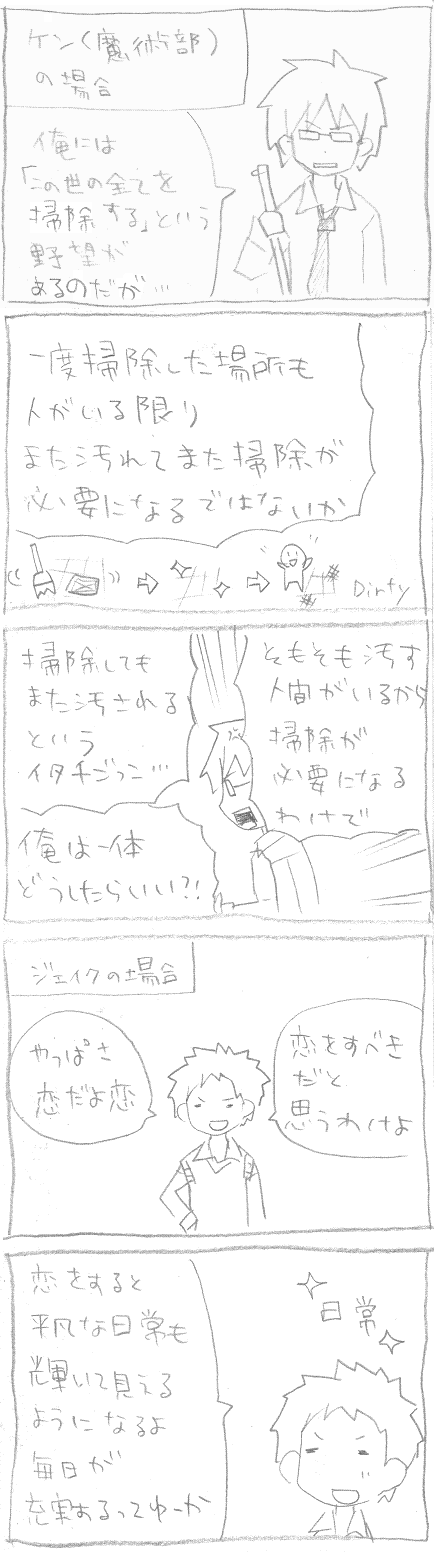 ケン（魔術部）
の場合
俺には
「この世の全てを
掃除する」という
野望が
あるのだが…
一度掃除した場所も
人がいる限り
また汚れてまた掃除が
必要になるではないか
Dirty
そもそも汚す
人間がいるから
掃除が
必要になる
わけで
掃除しても
また汚される
という
イタチごっこ…
俺は一体
どうしたらいい?!
ジェイクの場合
恋をすべき
だと
思うわけよ
やっぱさ
恋だよ恋
日常
恋をすると
平凡な日常も
輝いて見える
ようになるよ
毎日が
充実するってゆーか